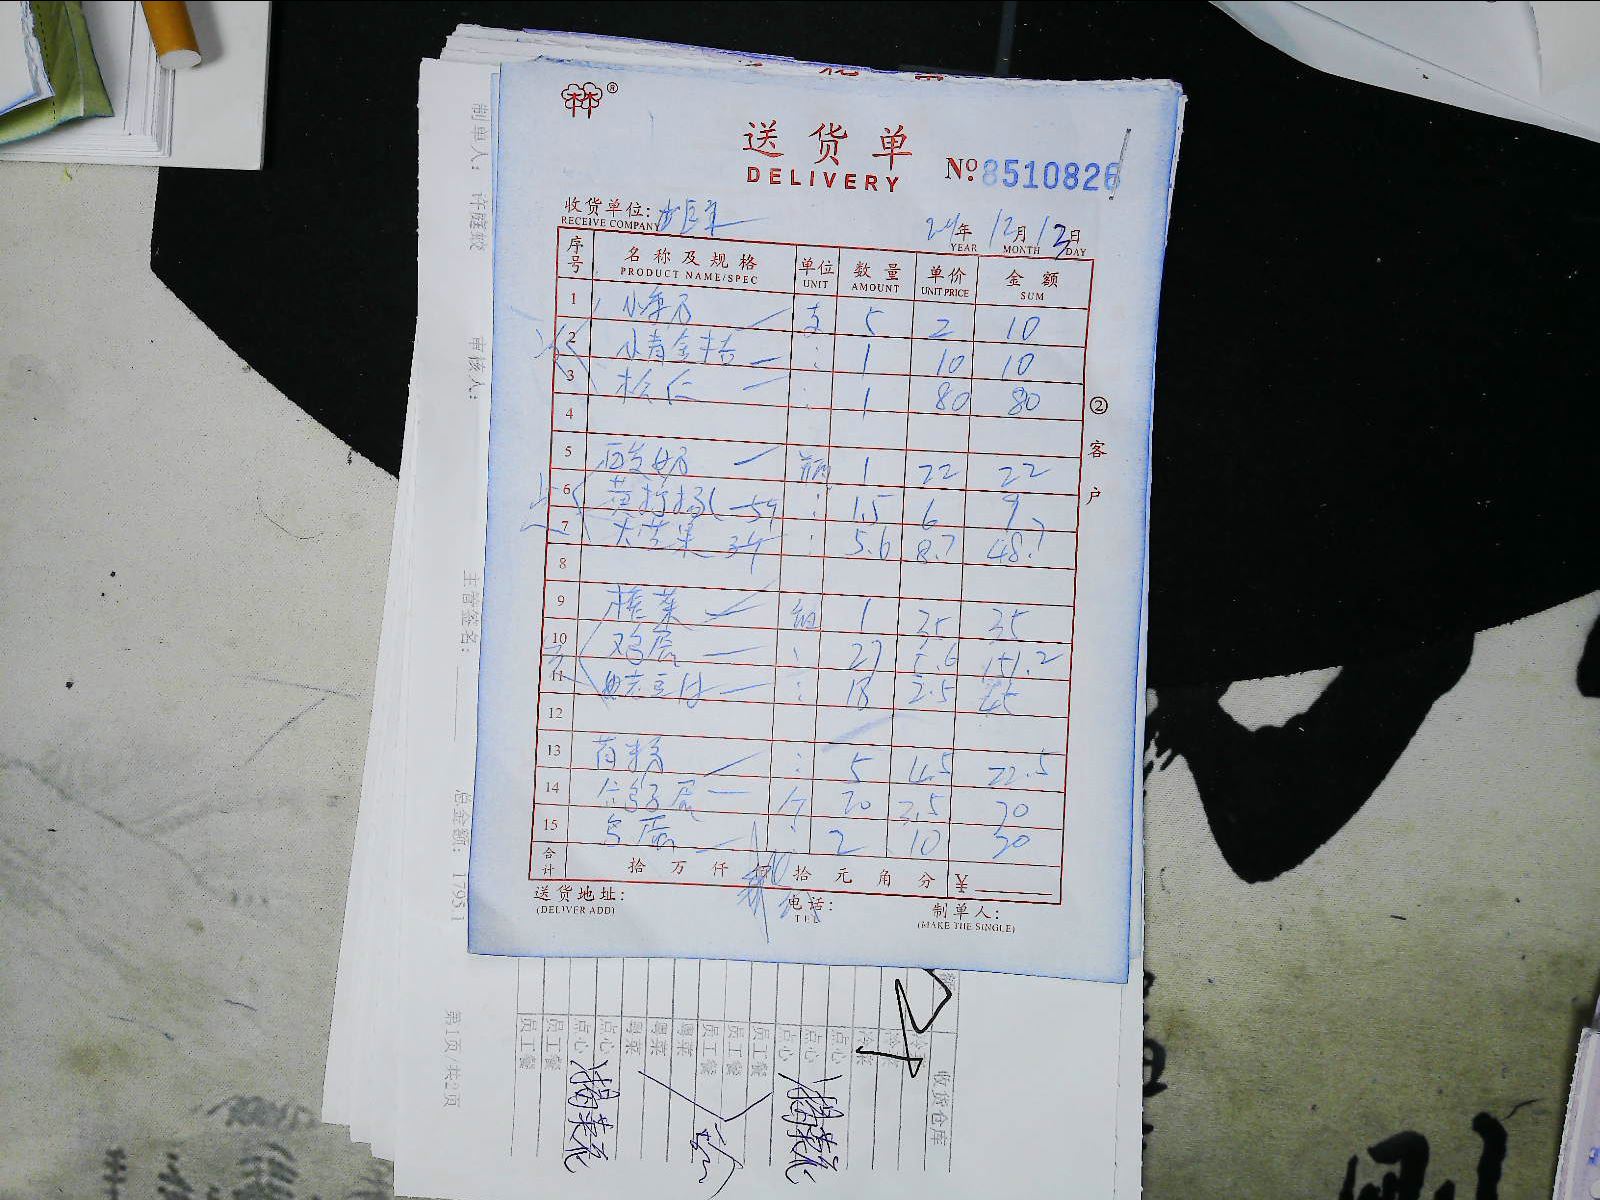 送货单
DELIVERY
No. 8510826
收货单位:
RECEIVE COMPANY
24年 12月 13日
YEAR MONTH DAY
序号 名称及规格 单位 数量 单价 金额
PRODUCT NAME/SPEC UNIT AMOUNT UNIT PRICE SUM
1 小米乃 支 5 2 10
2 小青金桔 : 1 10 10
3 松仁 : 1 80 80
4
5 酸奶 瓶 1 22 22
6 : 1.5 6 9
7 火龙果 : 5.6 8.7 48.7
8
9 榨菜 1 35 35
10 鸡蛋 : 27 5.6 151.2
11 老豆付 : 18 2.5 45
12
13 : 5 4.5 22.5
14 鸽子蛋 个 20 3.5 70
15 : 2 10 20
合计 拾 万 仟 佰 拾 元 角 分 ¥
送货地址: 电话: 制单人:
(DELIVER ADD) TEL (MAKE THE SINGLE)
②客户
制单人:
审核人:
主管签名:
总金额: 1795.1
第1页/共2页
收货仓库
点心
点心
员工餐
员工餐
员工餐
粤菜
粤菜
点心
点心
员工餐
员工餐